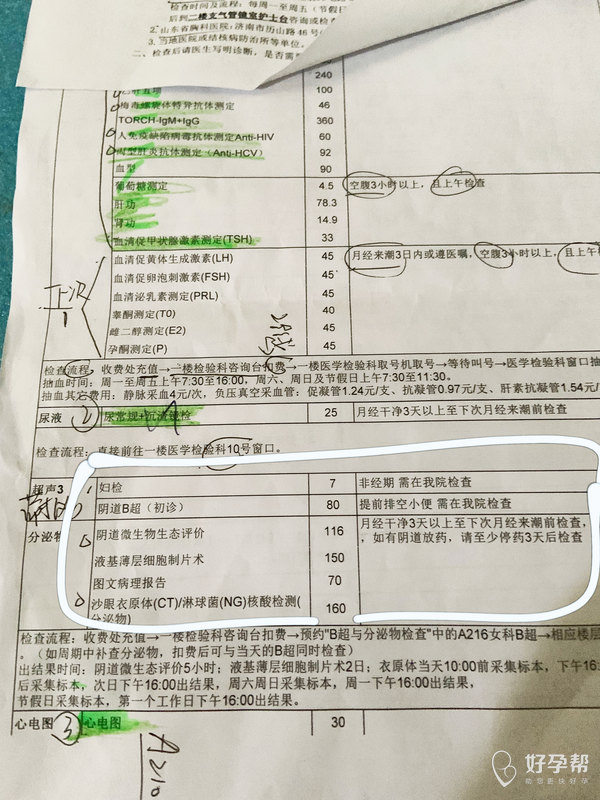 检查时间及流程：每周一至周五（节假日
后到二楼支气管镜室护士台咨询或检查
2. 山东省胸科医院：济南市历山路46号（
3. 当地医院或结核病防治所等单位。
二、检查后请医生写明诊断，是否需
240
乙肝五项 100
梅毒螺旋体特异抗体测定 46
TORCH-IgM+IgG 360
人免疫缺陷病毒抗体测定Anti-HIV 60
丙型肝炎抗体测定（Anti-HCV） 92
血型 90
葡萄糖测定 4.5 空腹3小时以上，且上午检查
肝功 78.3
肾功 14.9
血清促甲状腺激素测定(TSH) 33
血清促黄体生成激素(LH) 45 月经来潮3日内或遵医嘱，空腹3小时以上，且上午
血清促卵泡刺激素(FSH) 45
血清泌乳素测定(PRL) 45
睾酮测定(T0) 40
雌二醇测定(E2) 45
孕酮测定(P) 45
检查流程：收费处充值→二楼检验科咨询台扣费→一楼医学检验科取号机取号→等待叫号→医学检验科窗口抽
抽血时间：周一至周五上午7:30至16:00，周六、周日及节假日上午7:30至11:30。
抽血其它费用：静脉采血4元/次，负压真空采血管：促凝管1.24元/支、抗凝管0.97元/支、肝素抗凝管1.54元/
尿液 ② 尿常规+沉渣镜检 25 月经干净3天以上至下次月经来潮前检查
检查流程：直接前往一楼医学检验科10号窗口。
超声3 妇检 7 非经期 需在我院检查
阴道B超（初诊） 80 提前排空小便 需在我院检查
分泌物 阴道微生物生态评价 116 月经干净3天以上至下次月经来潮前检查，
，如有阴道放药，请至少停药3天后检查
液基薄层细胞制片术 150
图文病理报告 70
沙眼衣原体(CT)/淋球菌(NG)核酸检测(
分泌物) 160
检查流程：收费处充值→一楼检验科咨询台扣费→预约"B超与分泌物检查"中的A216女科B超→相应楼层
。（如周期中补查分泌物，扣费后可与当天的B超同时检查）
出结果时间：阴道微生态评价5小时；液基薄层细胞制片术2日；衣原体当天10:00前采集标本，下午16:
后采集标本，次日下午16:00出结果，周六周日采集标本，周一下午16:00出结果，
节假日采集标本，第一个工作日下午16:00出结果。
心电图 ③ 心电图 30
A210
好孕帮
助您更快好孕